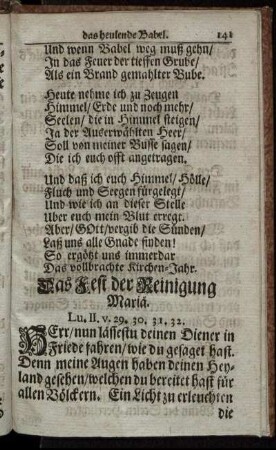 das heulende Babel. 141
Und wenn Babel weg muß gehn/
In das Feuer der tieffen Grube/
Als ein Brand gemahlter Bube.
Heute nehme ich zu Zeugen
Himmel/ Erde und noch mehr/
Seelen/ die in Himmel steigen/
Ja der Auserwählten Heer/
Soll von meiner Busse sagen/
Die ich euch offt angetragen.
Und daß ich euch Himmel/ Hölle/
Fluch und Seegen fürgelegt/
Und wie ich an dieser Stelle
Uber euch mein Blut erregt.
Aber/ GOtt/ vergib die Sünden/
Laß uns alle Gnade finden!
So ergötzt uns immerdar
Das vollbrachte Kirchen-Jahr.
Das Fest der Reinigung
Mariä.
Lu, II. v. 29. 30. 31. 32.
HErr/ nun lässestu deinen Diener in
Friede fahren/ wie du gesaget hast.
Denn meine Augen haben deinen Hey-
land gesehen/ welchen du bereitet hast für
allen Völckern. Ein Licht zu erleuchten
die